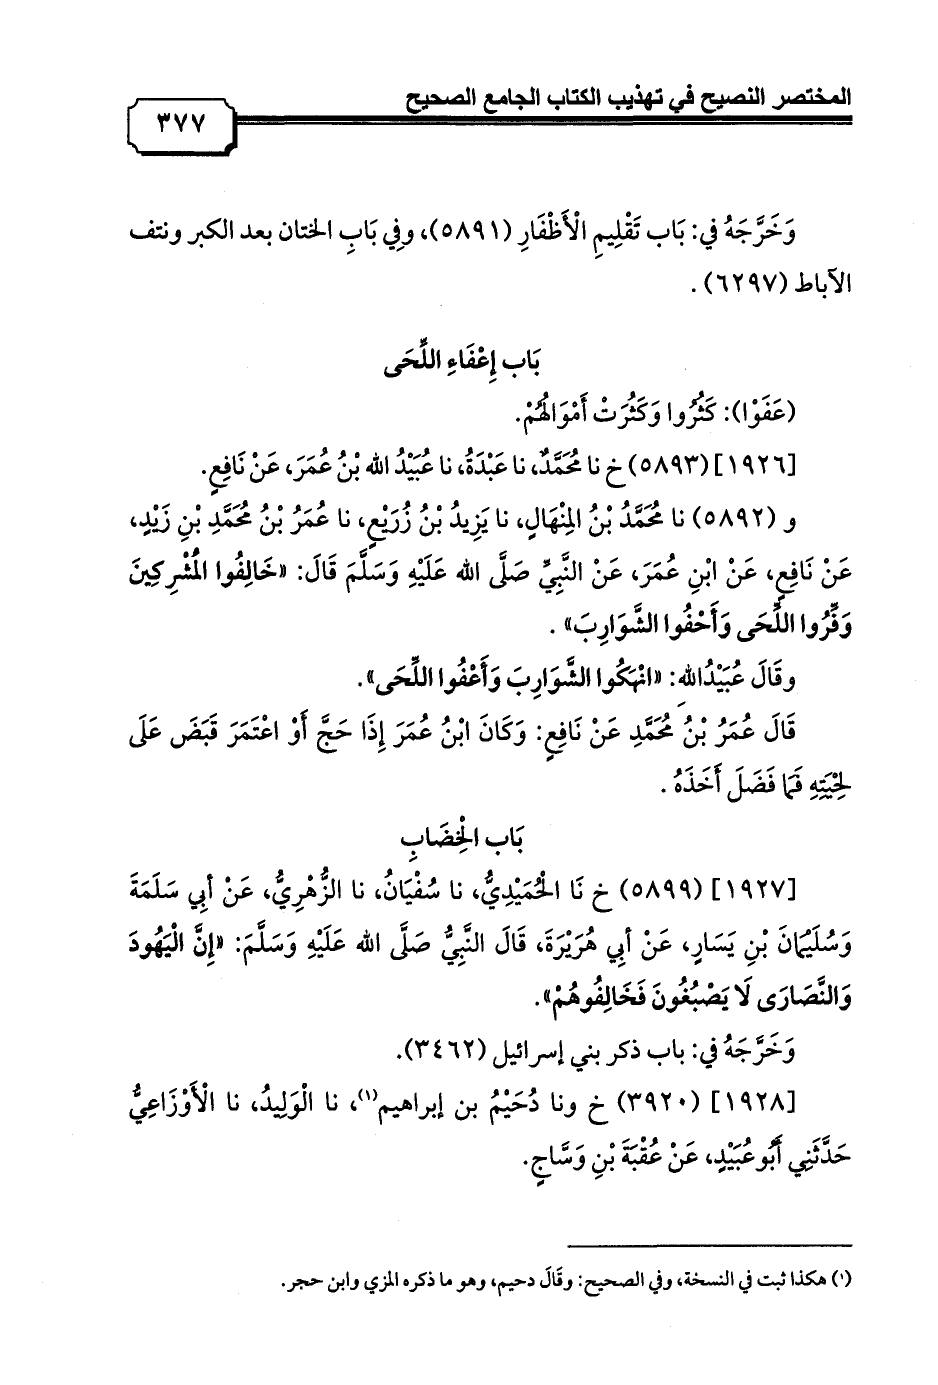 المختصر النصيح في تهذيب الكتاب الجامع الصحيح
٣٧٧
وَخَرَّجَهُ في: بَاب تَقْلِيمِ الْأَظْفَارِ (٥٨٩١)، وفِي بَابِ الختان بعد الكبر ونتف
الآباط (٦٢٩٧) .
بَاب إِعْفَاءِ اللِّحَى
(عَفَوْا): كَثُرُوا وَكَثُرَتْ أَمْوَالُهُمْ.
[١٩٢٦] (٥٨٩٣) خ نا مُحَمَّدٌ، نا عَبْدَةُ، نا عُبَيْدُ الله بْنُ عُمَرَ، عَنْ نَافِعٍ.
و (٥٨٩٢) نا مُحَمَّدُ بْنُ المِنْهَالِ، نا يَزِيدُ بْنُ زُرَيْعٍ، نا عُمَرُ بْنُ مُحَمَّدِ بْنِ زَيْدٍ،
عَنْ نَافِعٍ، عَنْ ابْنِ عُمَرَ، عَنْ النَّبِيِّ صَلَّى الله عَلَيْهِ وَسَلَّمَ قَالَ: «خَالِفُوا المُشْرِكِينَ
وَفِّرُوا اللِّحَى وَأَحْفُوا الشَّوَارِبَ» .
وقَالَ عُبَيْدُالله: «انْهَكُوا الشَّوَارِبَ وَأَعْفُوا اللِّحَى».
قَالَ عُمَرُ بْنُ مُحَمَّدِ عَنْ نَافِعٍ: وَكَانَ ابْنُ عُمَرَ إِذَا حَجَّ أَوْ اعْتَمَرَ قَبَضَ عَلَى
لِحْيَتِهِ فَمَا فَضَلَ أَخَذَهُ .
بَاب الْخِضَابِ
[١٩٢٧] (٥٨٩٩) خ نَا الْحُمَيْدِيُّ، نا سُفْيَانُ، نا الزُّهْرِيُّ، عَنْ أبِي سَلَمَةَ
وَسُلَيْمَانَ بْنِ يَسَارٍ، عَنْ أبِي هُرَيْرَةَ، قَالَ النَّبِيُّ صَلَّى الله عَلَيْهِ وَسَلَّمَ: «إِنَّ الْيَهُودَ
وَالنَّصَارَى لَا يَصْبُغُونَ فَخَالِفُوهُمْ».
وَخَرَّجَهُ في: باب ذكر بني إسرائيل (٣٤٦٢).
[١٩٢٨] (٣٩٢٠) خ ونا دُحَيْمُ بن إبراهيم(١)، نا الْوَلِيدُ، نا الْأَوْزَاعِيُّ
حَدَّثَنِي أَبُو عُبَيْدٍ، عَنْ عُقْبَةَ بْنِ وَسَّاجٍ.
(١) هكذا ثبت في النسخة، وفي الصحيح: وقَالَ دحيم، وهو ما ذكره المزي وابن حجر.